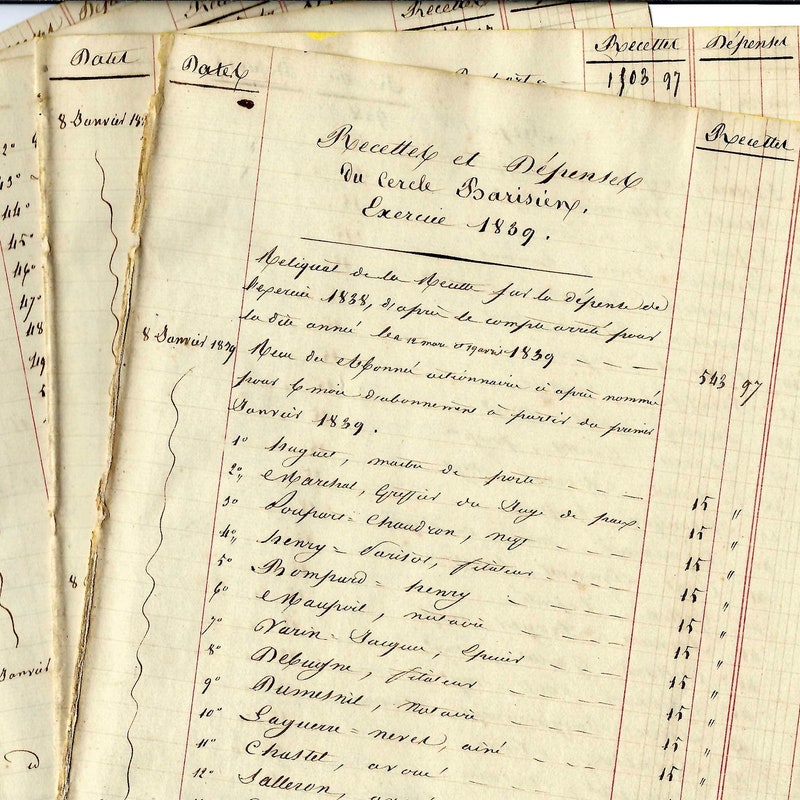 Recettes
Recettes Dépenses
1503 97
Dates
8 Janvier
2°
43°
44°
45°
46°
47°
48
49
8
Janvier
Dates
Recettes
Recettes et Dépenses
du Cercle Parisien.
Exercice 1839.
Reliquat de la Recette sur la dépense de
l'exercice 1838, d'après le compte arrêté pour
la dite année les 12 mars et 19 avril 1839 543 97
8 Janvier 1839
Reçu des Abonnés actionnaires ci après nommés
pour 6 mois d'abonnement à partir du premier
Janvier 1839.
1° huguet, maitre de poste 15 "
2° Marchal, Greffier du Juge de paix. 15 "
3° Poupart = Chaudron, negt 15 "
4° henry = Parisot, filateur 15 "
5° Bompard = henry 15 "
6° Maupoil, notaire 15 "
7° Varin = Jacques, Epicier 15 "
8° Debuyne, filateur 15 "
9° Dumesnil, notaire 15 "
10° Laguerre = nevel, ainé 15 "
11° Chastel, avoué
12° Salleron,